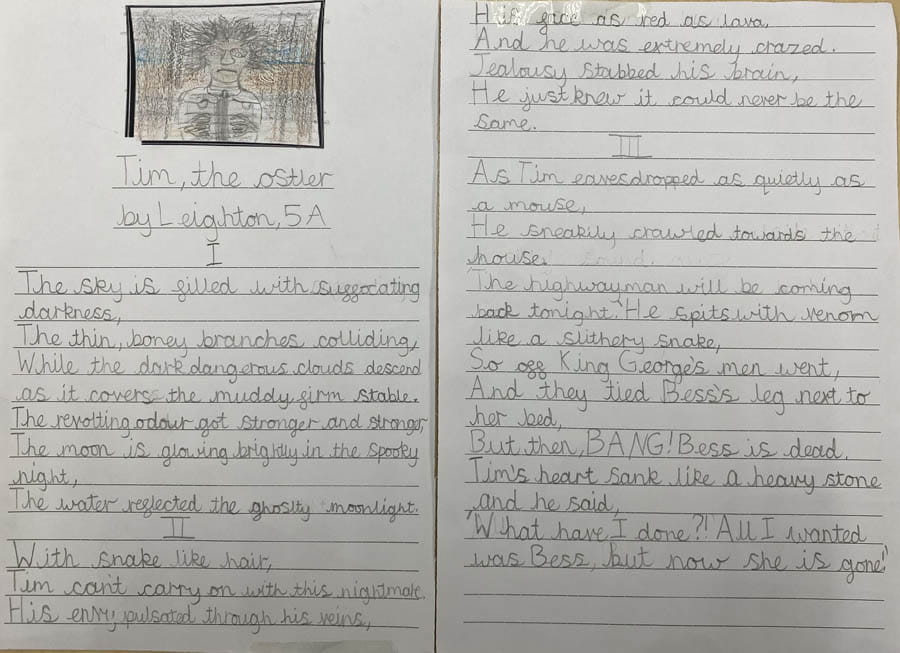 Tim, the ostler
by Leighton, 5A
I
The sky is filled with suffocating
darkness,
The thin, boney branches colliding,
While the dark dangerous clouds descend
as it covers the muddy firm stable.
The revolting odour got stronger and stronger,
The moon is glowing brightly in the spooky
night,
The water reflected the ghostly moonlight.
II
With snake like hair,
Tim can't carry on with this nightmare.
His envy pulsated through his veins,
His face as red as lava,
And he was extremely crazed.
Jealousy stabbed his brain,
He just knew it could never be the
same.
III
As Tim eavesdropped as quietly as
a mouse,
He sneakily crawled towards the
house.
'The highwayman will be coming
back tonight.' He spits with venom
like a slithery snake,
So off King George's men went,
And they tied Bess's leg next to
her bed,
But then, BANG! Bess is dead.
Tim's heart sank like a heavy stone
and he said,
'What have I done?! All I wanted
was Bess, but now she is gone!'